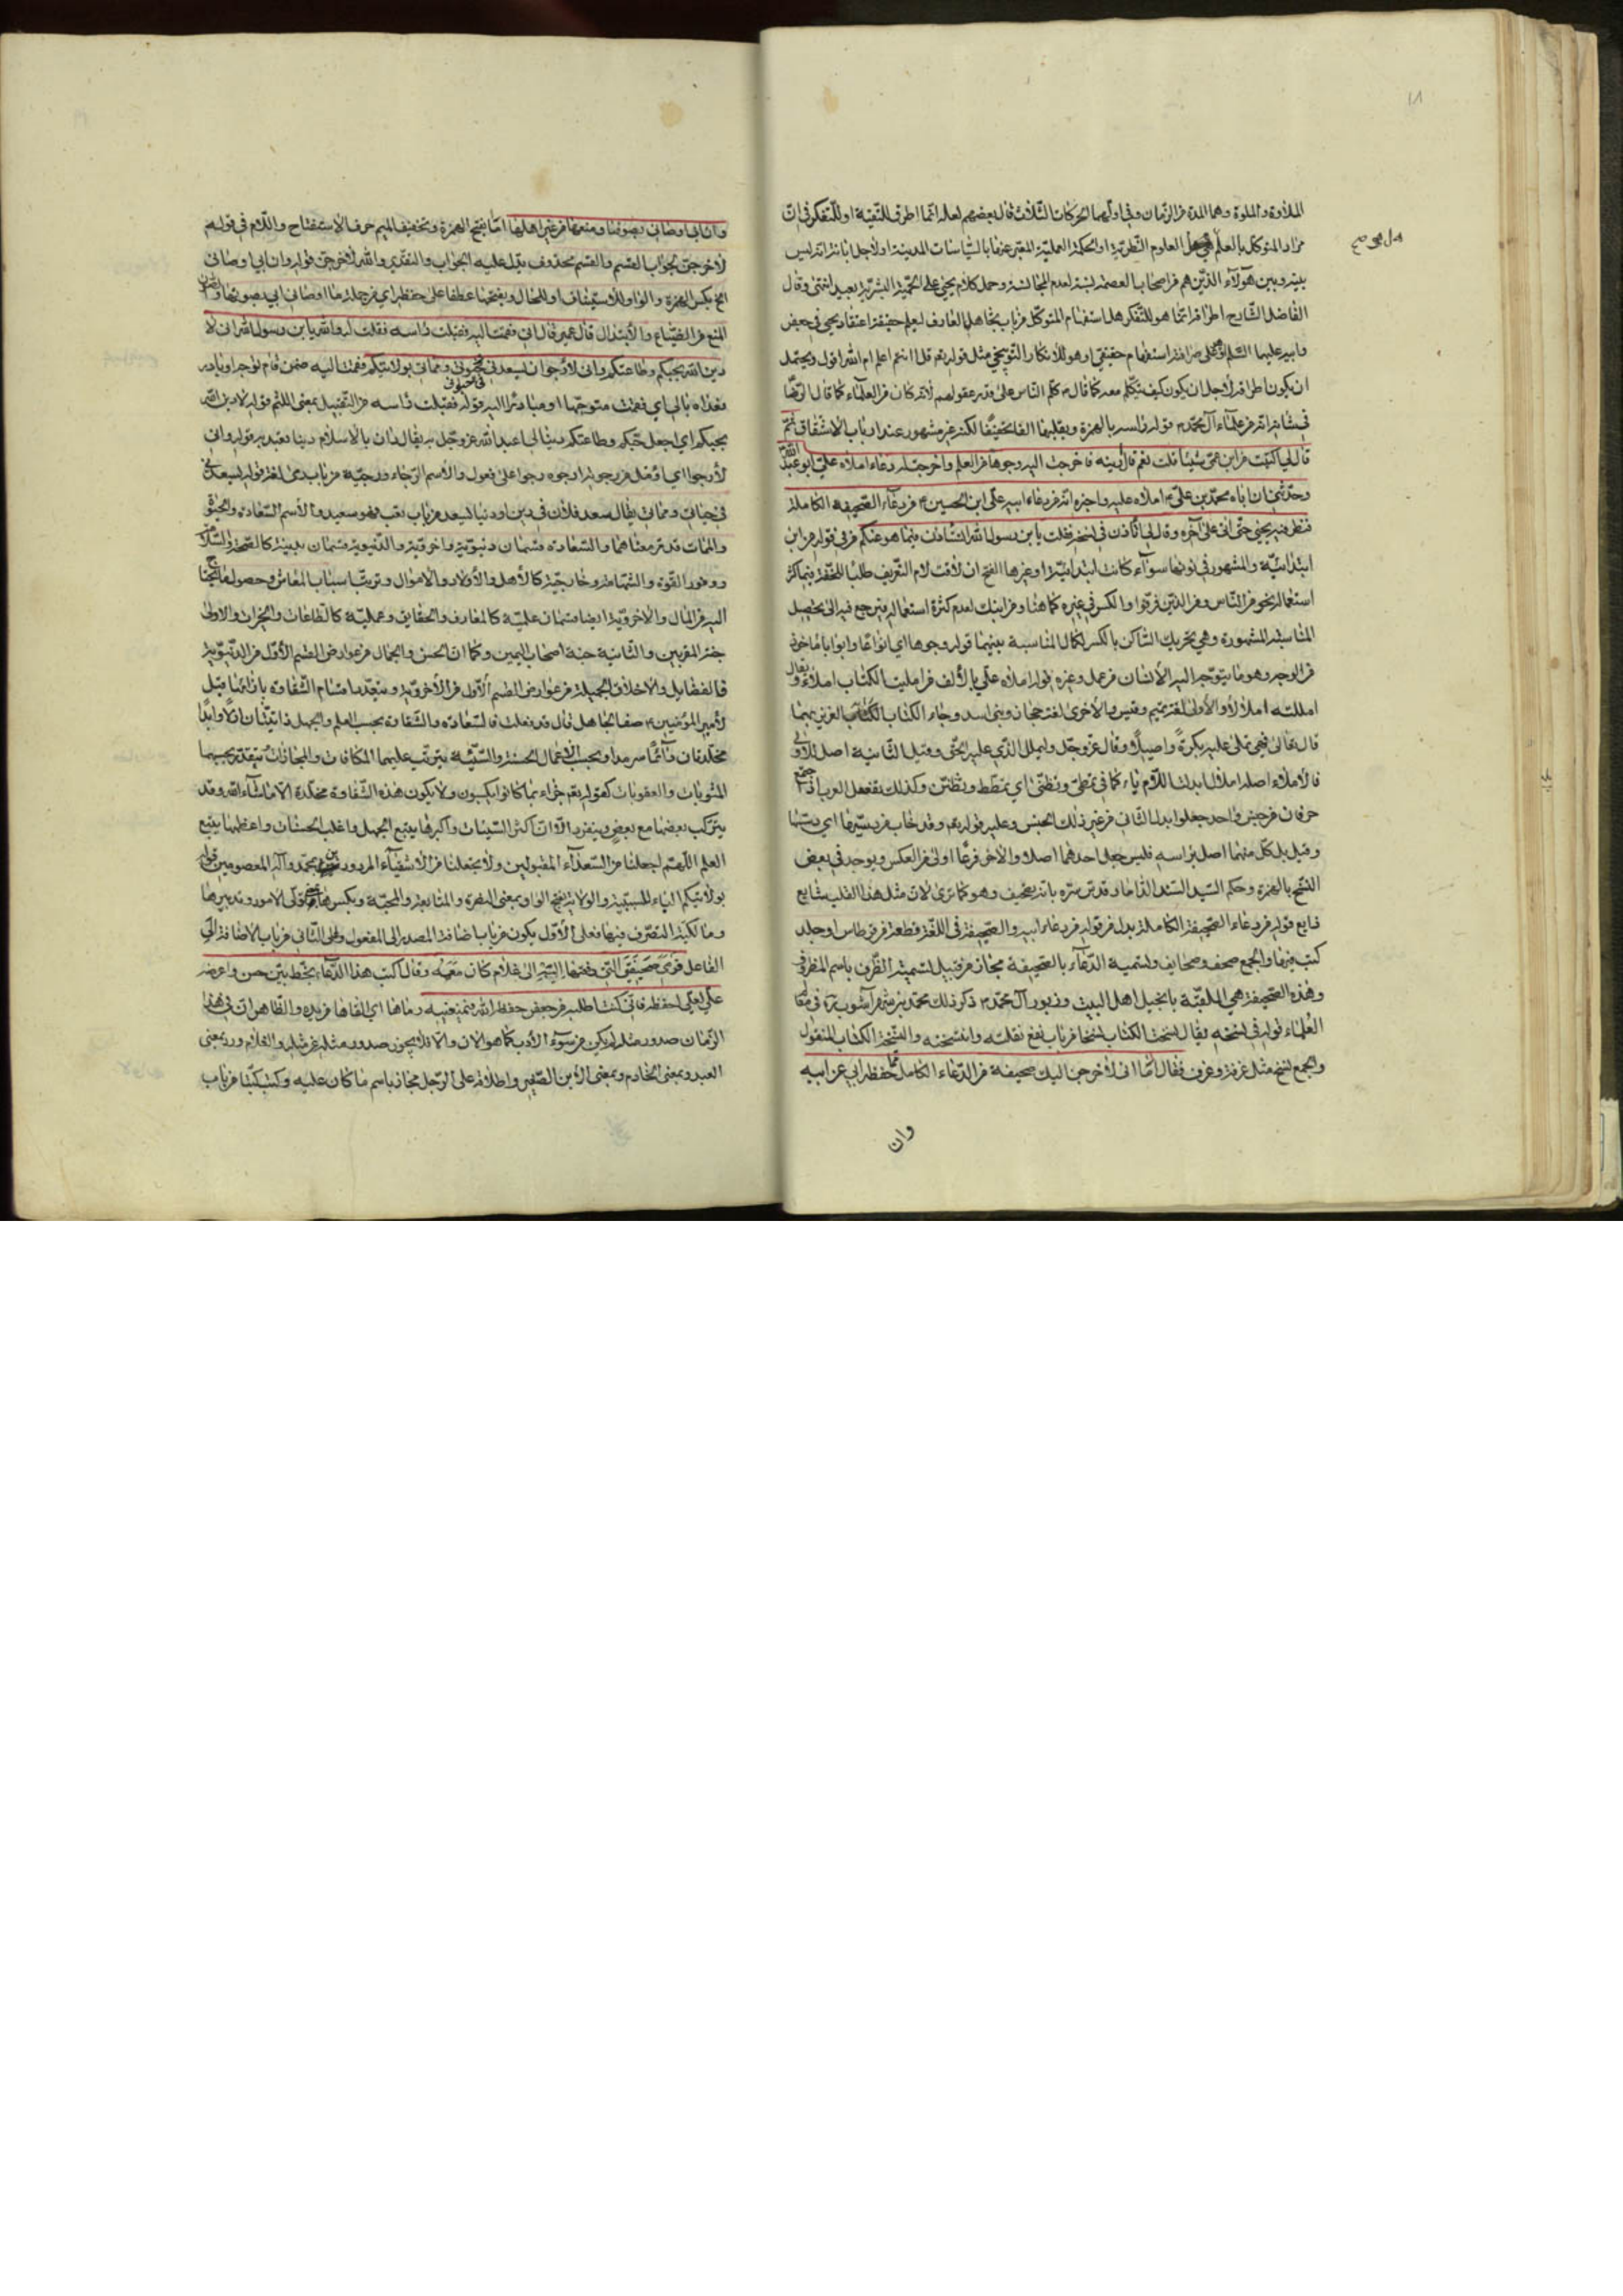 ١٨
الملاوة والملوة وهما المدة من الزمان وفي اولهما الحركات الثلاث قال بعضهم لعله انما اطرق للتقية او للتفكر في ان
مراد المتوكل بالعلم هل العلوم النظرية او الحكمة العملية المعبر عنها بالسياسات المدينة او لاجل انه ليس
بينه وبين هولاء الذين هم اصحاب العصمة نسبة لعدم المجانسة وحمل كلام يحيى على الحمية البشرية بعيد انتهى وقال
الفاضل الشارح اطراقه انما هو للتفكر هل استفهام المتوكل من باب تجاهل العارف ليعلم حقيقة اعتقاد يحيى في جعفر
وابيه عليهما السلم او استفهام حقيقي او هو للانكار والتوبيخي مثل قوله تعم قل ءانتم اعلم ام الله اقول ويحتمل
ان يكون اطراقه لاجل ان يكون كيف يتكلم معه كما قال كلم الناس على قدر عقولهم لانه كان من العلماء كما قال الرضا
في شانه انه من علماء آل محمد قوله راسه بالهمزة وبقلبها الفا تخفيفا لكنه غير مشهور عند ارباب الاشتقاق ثم
قال لي اكتبت من ابن عمي شيئا قلت نعم قال ارينه فاخرجت اليه وجوها من العلم واخرجت له دعاء املاه علي ابو عبد الله
وحدثني ان اباه محمد بن علي املاه عليه واخبره انه من دعاء ابيه علي ابن الحسين من دعاء الصحيفة الكاملة
فنظر فيه يحيى حتى اتى على آخره وقال لي اتأذن في نسخه فقلت يابن رسول الله اتستاذن فيما هو عنكم من في قوله من ابن
ابتدائية والمشهور في نونها سواء كانت ابتدائية او غيرها الفتح ان لاقت لام التعريف طلبا للخفة فيما كثر
استعماله نحو من الناس ومن الذين فرقوا والكسر في غيره كما هنا ومن ابنك لعدم كثرة استعماله فيرجع فيه الى تحصيل
المناسبة المشهورة وهي تحريك الساكن بالكسر لكمال المناسبة بينهما قوله وجوها اي انواعا وابوابا ماخوذ
من الوجه وهو ما يتوجه اليه الانسان من عمل وغيره قوله املاه علي بالألف من امليت الكتاب املاء ويقال
امللته املالا والاولى لغة تميم وقيس والاخرى لغة حجاز وبني اسد وجاء الكتاب العزيز بهما
قال تعالى فهي تملى عليه بكرة واصيلا وقال عز وجل وليملل الذي عليه الحق وقيل الثانية اصل للاولى
فالاملاء اصله املال ابدلت اللام ياء كما في تمطى وتظنى اي تمطط وتظنن وكذلك تفعل العرب اذا اجتمع
حرفان من جنس واحد جعلوا بدل الثاني من غير ذلك الجنس وعليه قوله تعم وقد خاب من دسيها اي دسسها
وقيل بل كل منهما اصل براسه فليس جعل احدهما اصلا والاخر فرعا اولى من العكس ويوجد في بعض
النسخ بالهمزة وحكم السيد السند الداماد قدس سره بانه تصحيف وهو كما ترى لان مثل هذا القلب شايع
ذايع قوله من دعاء الصحيفة الكاملة بدل من قوله من دعاء ابيه والصحيفة في اللغة قطعة من قرطاس او جلد
كتب فيها والجمع صحف وصحايف وتسمية الدعاء بالصحيفة مجاز من قبيل تسمية الظرف باسم المظروف
وهذه الصحيفة هي الملقبة بانجيل اهل البيت وزبور آل محمد ذكر ذلك محمد بن شهر آشوب في معالم
العلماء قوله في نسخه يقال نسخت الكتاب نسخا من باب نفع نقلته وانتسخته والنسخة الكتاب المنقول
والجمع نسخ مثل غرفة وغرف فقال اما اني لأخرجن اليك صحيفة من الدعاء الكامل مما حفظه ابي عن ابيه
وان
وان ابي اوصاني بصونها ومنعها من غير اهلها اما بفتح الهمزة وتخفيف الميم حرف الاستفتاح واللام في قوله
لاخرجن لجواب القسم والقسم محذوف يدل عليه الجواب والتقدير والله لاخرجن قوله وان ابي اوصاني
الخ بكسر الهمزة والواو للاستيناف او للحال وبفتحها عطفا على حفظه اي من جملة ما اوصاني ابي بصونها
المنع من الضياع والابتذال قال عمير قال ابي فقمت اليه فقبلت راسه فقلت له والله يابن رسول الله اني لا
دين الله بحبكم وطاعتكم واني لأرجو ان يسعدني في حيوتي ومماتي بولايتكم فقمت اليه ضمن قام توجه او بادر
فعداه بالى اي فقمت متوجها او مبادرا اليه قوله فقبلت راسه من التقبيل بمعنى اللثم قوله لادين الله
بحبكم اي اجعل حبكم وطاعتكم دينا لي اعبد الله عز وجل به يقال دان بالاسلام دينا تعبد به قوله واني
لأرجو اي اؤمل من رجوته ارجوه رجوا على فعول والاسم الرجاء ورجيته من باب رمى لغة قوله يسعدني
في حياتي ومماتي يقال سعد فلان في دين او دنيا يسعد من باب تعب فهو سعيد والاسم السعادة والحيوة
والممات قد مر معناهما والسعادة قسمان دنيوية واخروية والدنيوية قسمان بدنية كالصحة والسلامة
ووفور القوة والشهامة وخارجية كالأهل والأولاد والاموال وترتب اسباب المعاش وحصول ما يحتاج
اليه من المال والاخروية ايضا قسمان علمية كالمعارف والحقايق وعملية كالطاعات والخيرات والاولى
جنة المقربين والثانية جنة اصحاب اليمين وكما ان الحسن والجمال من عوارض القسم الأول من الدنيوية
فالفضايل والاخلاق الجميلة من عوارض القسم ألأول من الأخروية وبتعدد اقسام الشقاوة بازائها قيل
لامير المؤمنين صف الجاهل قال قد فعلت فالسعادة والشقاوة بحسب العلم والجهل ذاتيتان ازلا وابدا
مخلدتان دائما سرمدا وبحسب الأعمال الحسنة والسيئة يترتب عليهما المكافات والمجازات تتقدر بحسبهما
المثوبات والعقوبات كقوله تعم جزاء بما كانوا يكسبون ولا يكون هذه الشقاوة مخلدة الا ما شاء الله وقد
يتركب بعضها مع بعض وينفرد الا ان اكثر السيئات واكبرها يتبع الجهل واغلب الحسنات واعظمها يتبع
العلم اللهم اجعلنا من السعداء المقبولين ولا تجعلنا من الاشقياء المردودين بمحمد وآله المعصومين قوله
بولايتكم الباء للسببية والولاية بفتح الواو بمعنى النصرة والمتابعة والمحبة وبكسرها تولى الامور وتدبيرها
ومالكية التصرف فيها فعلى الأول يكون من باب اضافة المصدر الى المفعول وعلى الثاني من باب الاضافة الى
الفاعل فرمى صحيفتي التي دفعتها اليه الى غلام كان معه وقال اكتب هذا الدعاء بخط بين حسن واعرضه
علي لعلي احفظه فاني كنت اطلبه من جعفر حفظه الله فيمنعنيه رماها اي القاها من يده والظاهر ان في هذا
الزمان صدور مثله لم يكن من سوء الأدب كما هو الان والا فلا يجوز صدور مثله عن مثله والغلام ورد بمعنى
العبد وبمعنى الخادم وبمعنى الأبن الصغير واطلاقه على الرجل مجاز باسم ما كان عليه وكتب كتبا من باب